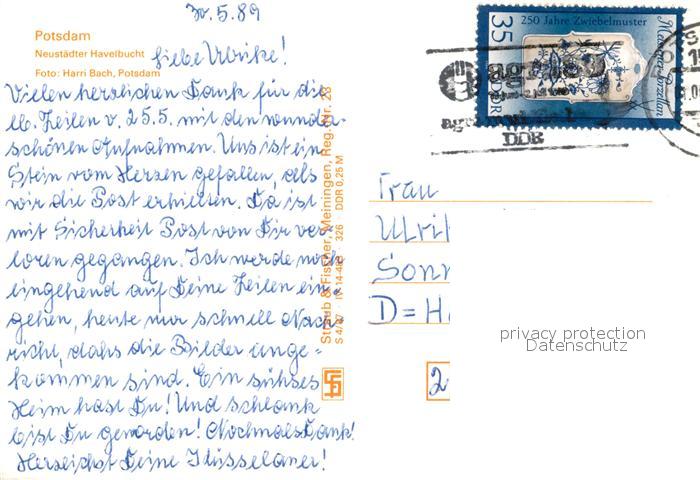 30.5.89
Potsdam
Neustädter Havelbucht
Foto: Harri Bach, Potsdam
Liebe Ulrike!
Vielen herzlichen Dank für die
lb. Zeilen v. 25.5. mit den wunder-
schönen Aufnahmen. Uns ist ein
Stein vom Herzen gefallen, als
wir die Post erhielten. Da ist
mit Sicherheit Post von Dir ver-
loren gegangen. Ich werde noch
eingehend auf Deine Zeilen ein-
gehen, heute nur schnell Nach-
richt, dahs die Bilder ange=
kommen sind. Ein sühses
Heim hast Du! Und schlank
bist Du geworden! Nochmals Dank!
Herzlichst Deine
Straub & Fischer, Meiningen, Reg.-Nr. 28
S 4/87 326 DDR 0,25 M
250 Jahre Zwiebelmuster
Meissner Porzellan
35
DDR
agra
DDR
Frau
Ulri
Sonn
D=H
2
privacy protection
Datenschutz